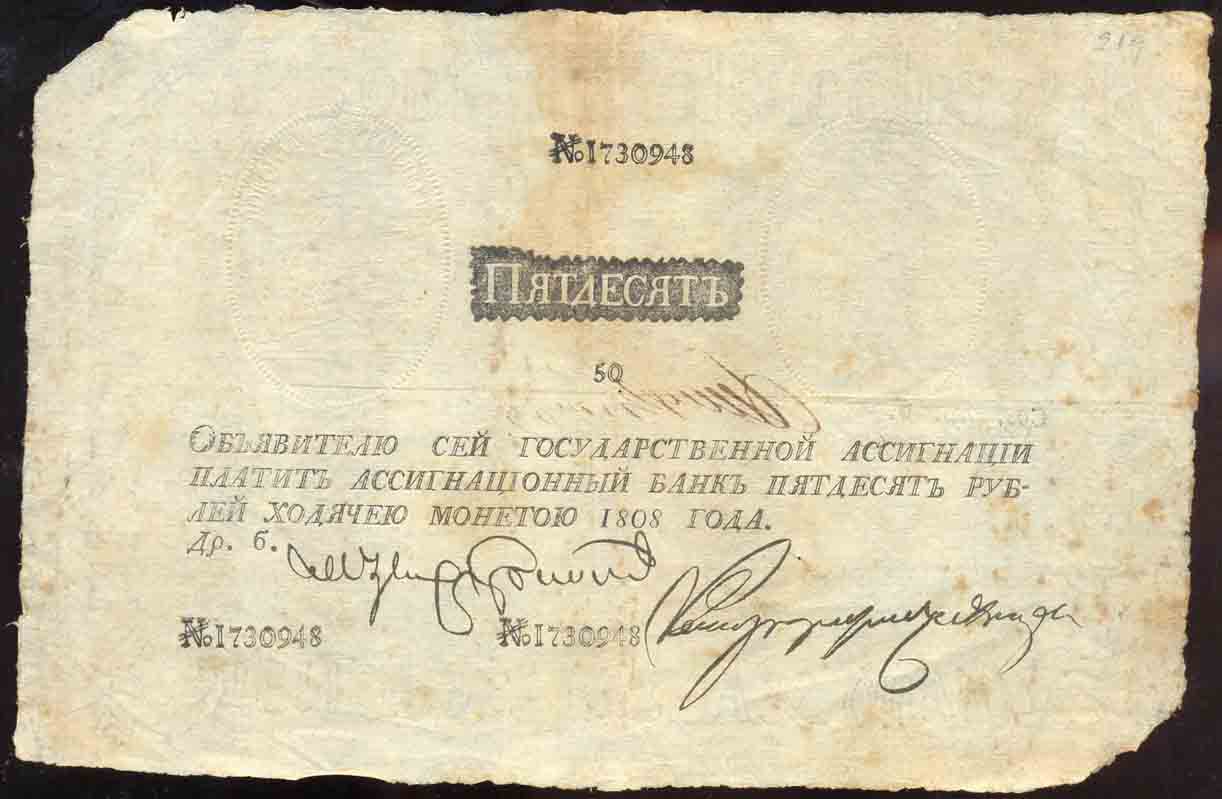 919
№ 1730948
Пятдесятъ
50
Объявителю сей государственной ассигнаціи
платитъ ассигнаціонный банкъ пятдесятъ руб-
лей ходячею монетою 1808 года.
Др. б.
№ 1730948 № 1730948